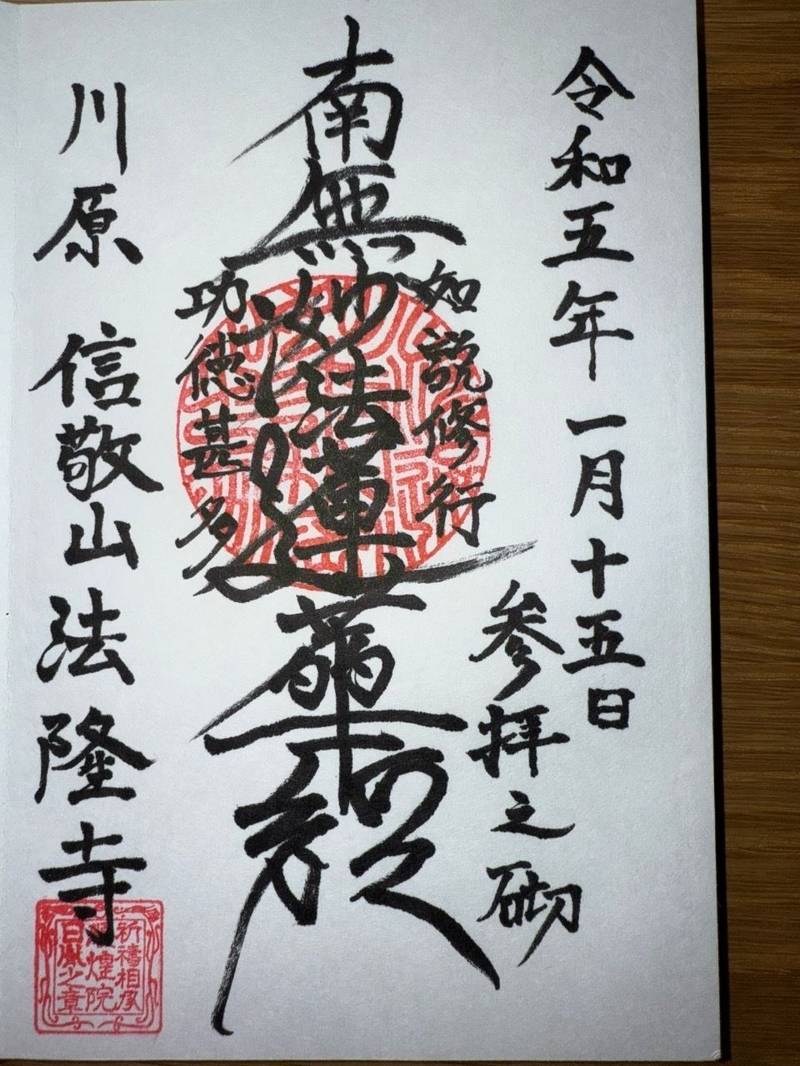 令和五年一月十五日
参拝之砌
如説修行
南無妙法蓮華経
功徳甚多
川原 信敬山法隆寺
祈禱相承
煌院
日鳳之章